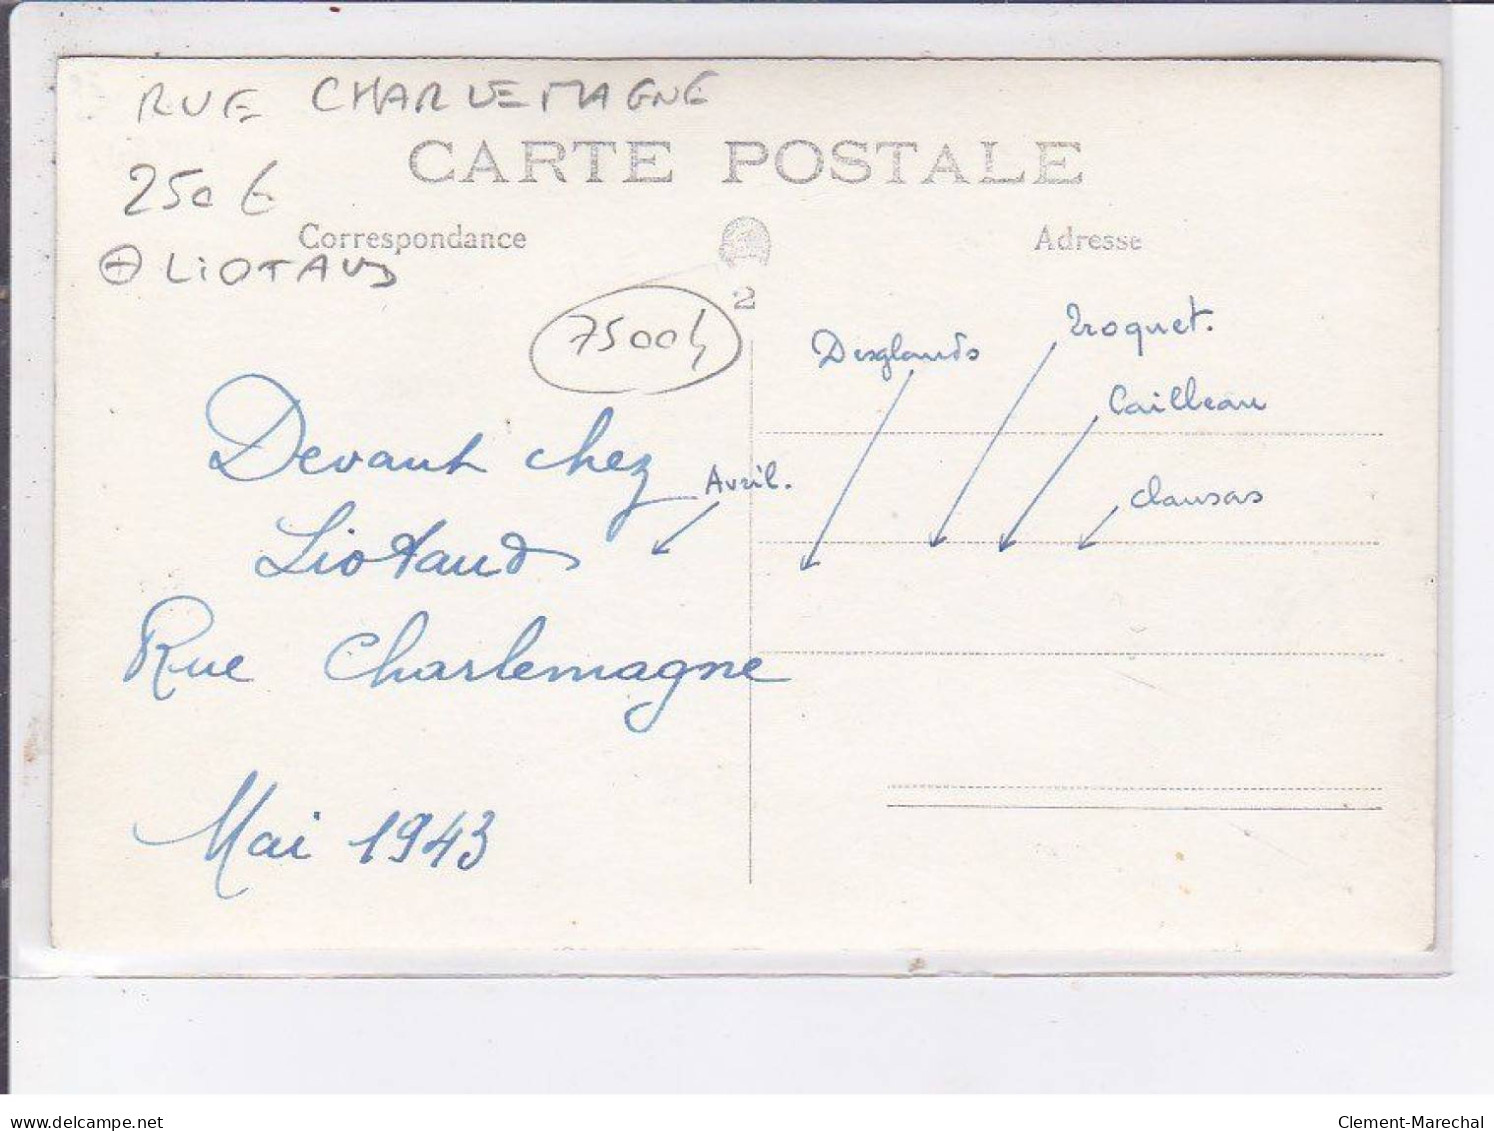 RUE CHARLEMAGNE
CARTE POSTALE
250 €
Correspondance
Adresse
⊕ LIOTAUD
2
75004
Desglands
Troquet.
Cailleau
Clausas
Avril.
Devant chez
Liotaud
Rue Charlemagne
Mai 1943
delcampe.net
Clement-Marechal